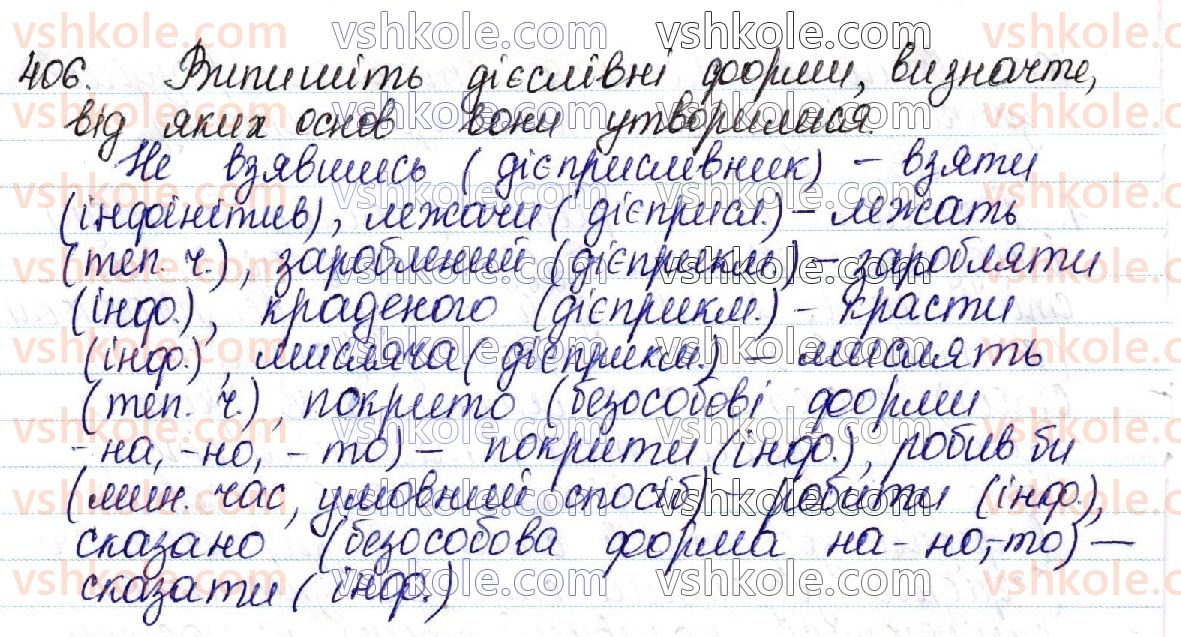 406. Випишіть дієслівні форми, визначте,
від яких основ вони утворилися.
Не взявшись (дієприслівник) – взяти
(інфінітив), лежачи (дієприсл.) – лежать
(теп. ч.), зароблений (дієприкм) – заробляти
(інф.), краденого (дієприкм.) – красти
(інф.), мисляча (дієприкм.) – мислять
(теп. ч.), покрито (безособові форми
-на, -но, -то) – покрити (інф.), робив би
(мин. час, умовний спосіб) – робити (інф.),
сказано (безособова форма на -но,-то) –
сказати (інф.)
vshkole.com